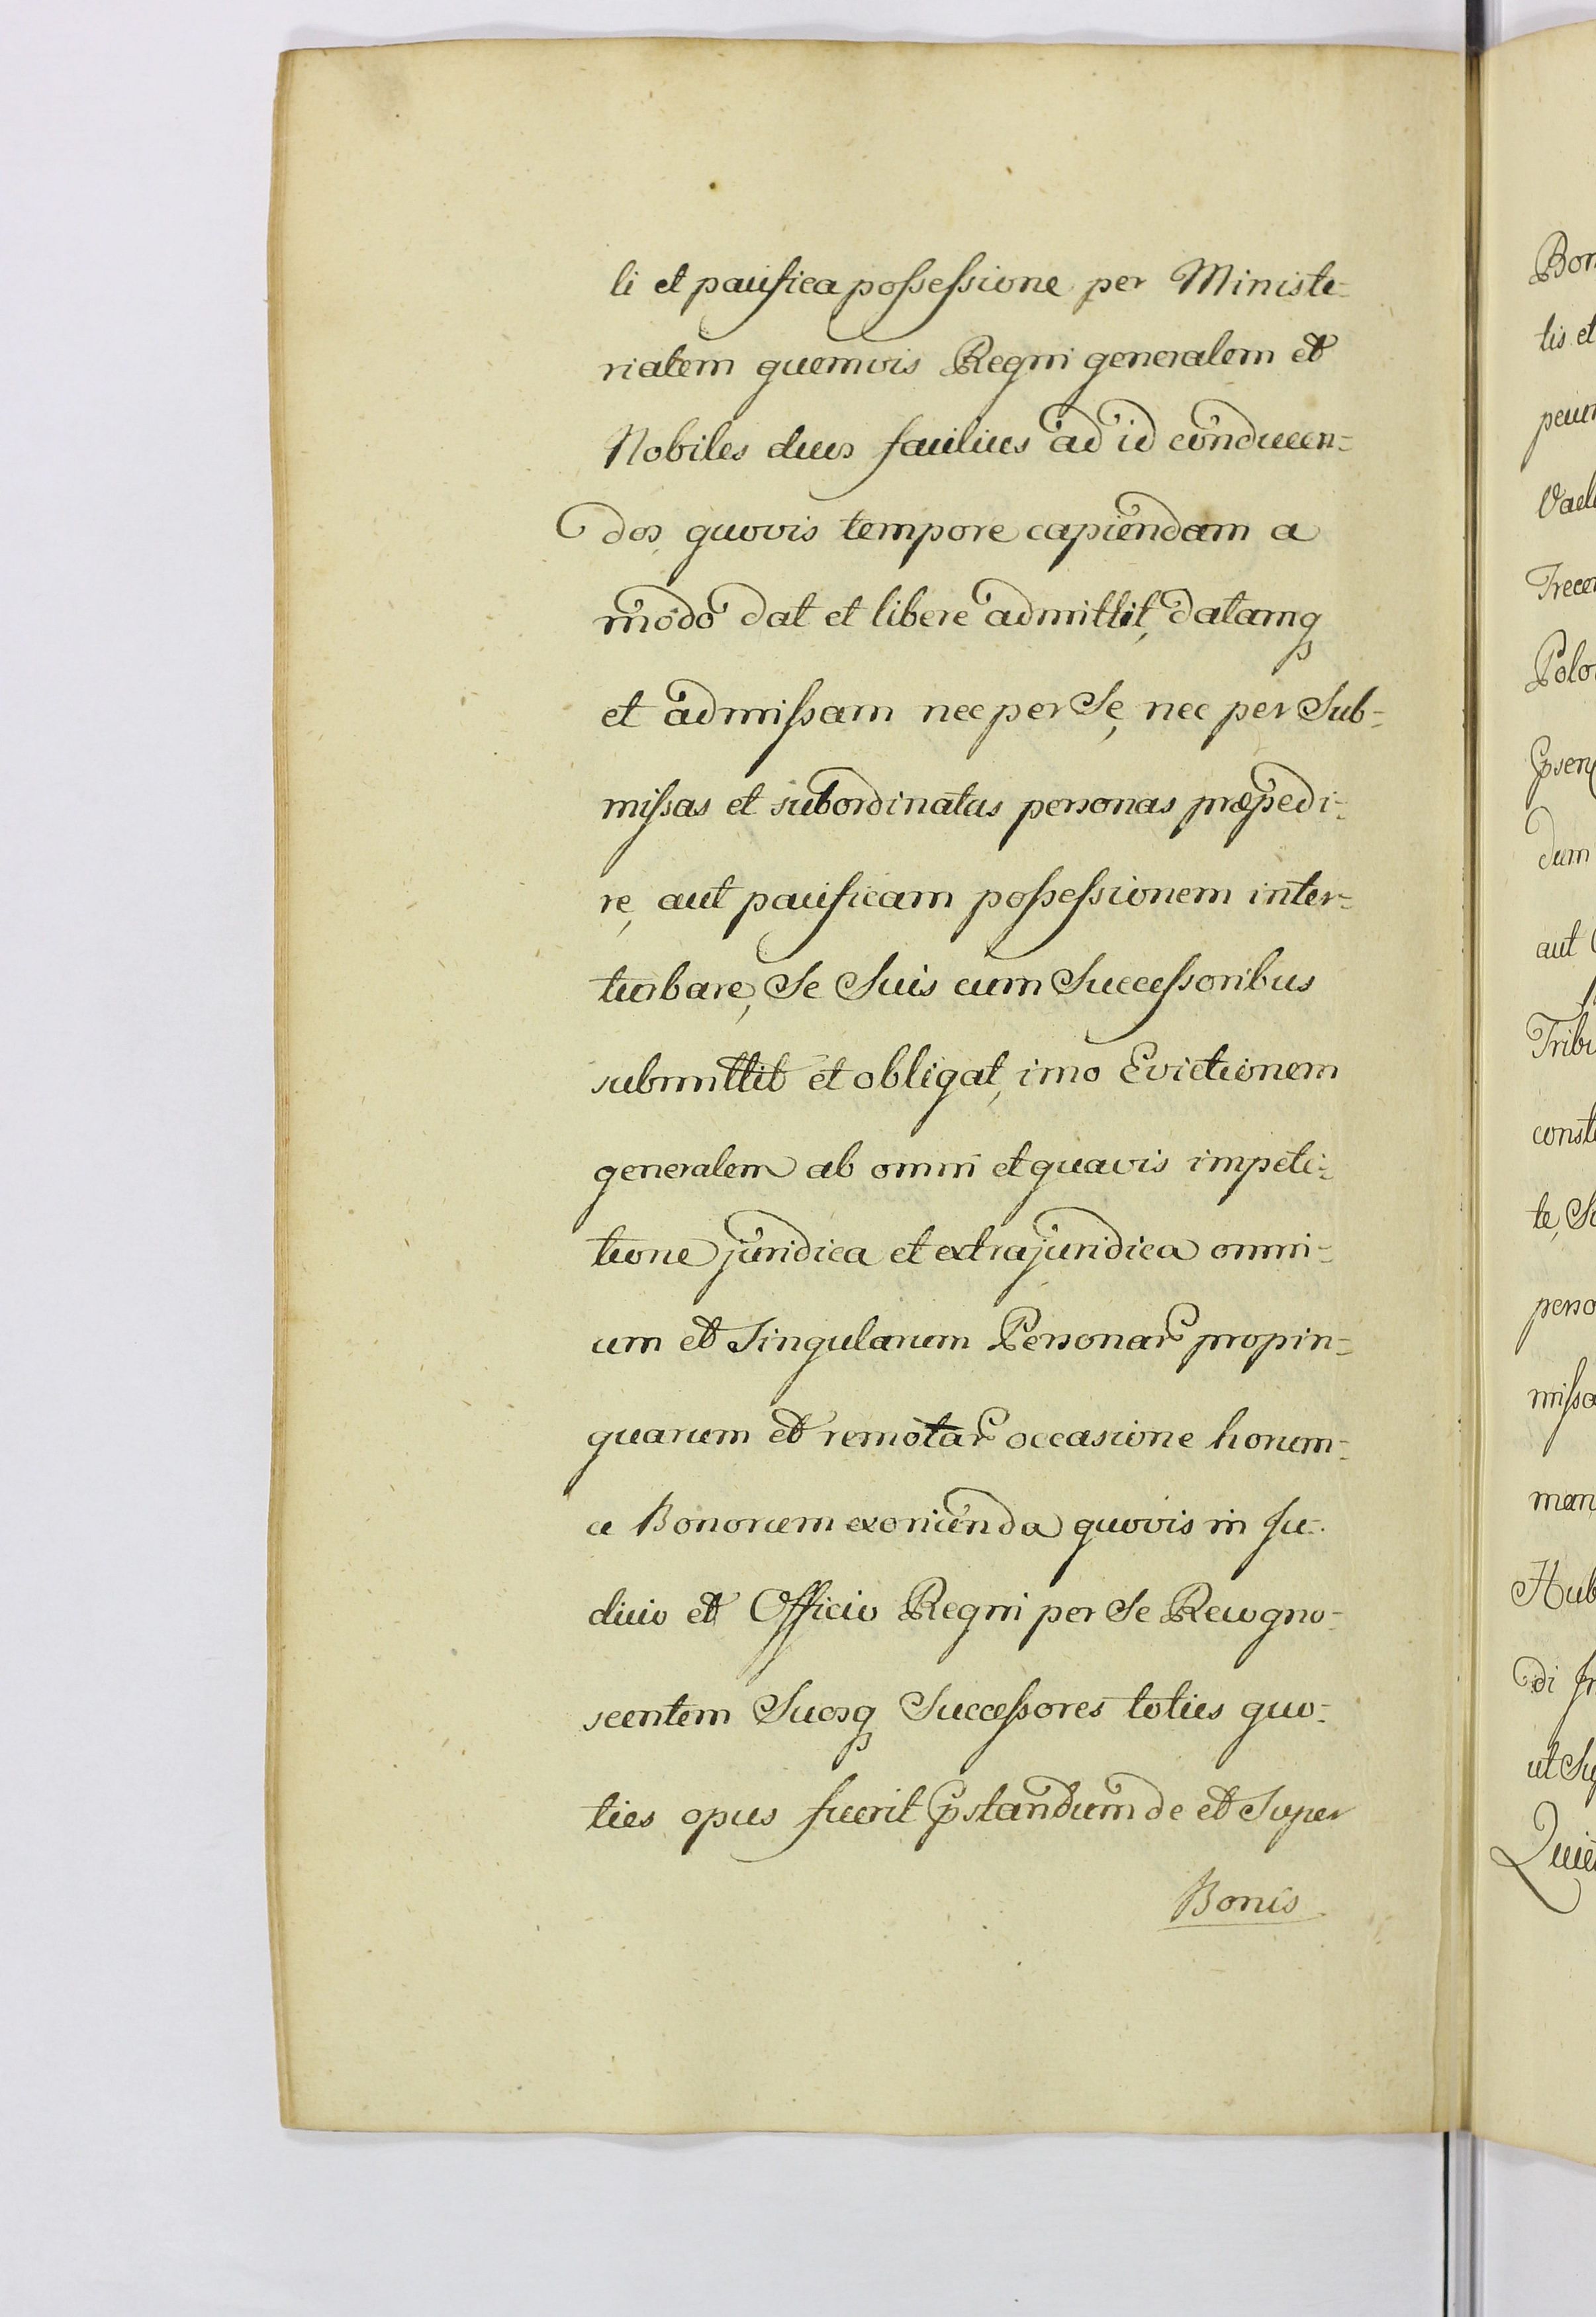 li et pacifica possessione per Ministe-
rialem quemvis Regni generalem et
Nobiles duos facilius ad id conducen-
dos, quovis tempore capiendam a
modo dat et libere admittit, datamq
et admissam nec per Se, nec per Sub-
missas et subordinatas personas præpedi-
re, aut pacificam possessionem inter-
turbare, Se Suis cum Successoribus
submittit et obligat, imo Evictionem
generalem ab omni et quavis impeti-
tione juridica et extrajuridica omni-
um et Singularum Personar propin-
quarum et remotar occasione horum-
ce Bonorum exorienda quovis in Ju-
dicio et Officio Regni per Se Recogno-
scentem Suosq Successores toties quo-
ties opus fuerit pstandum de et Super
Bonis
Bon
tis et
Trece
Polo
dum
aut
Tribu
const
te, Se
perso
missa
man
Hub
di